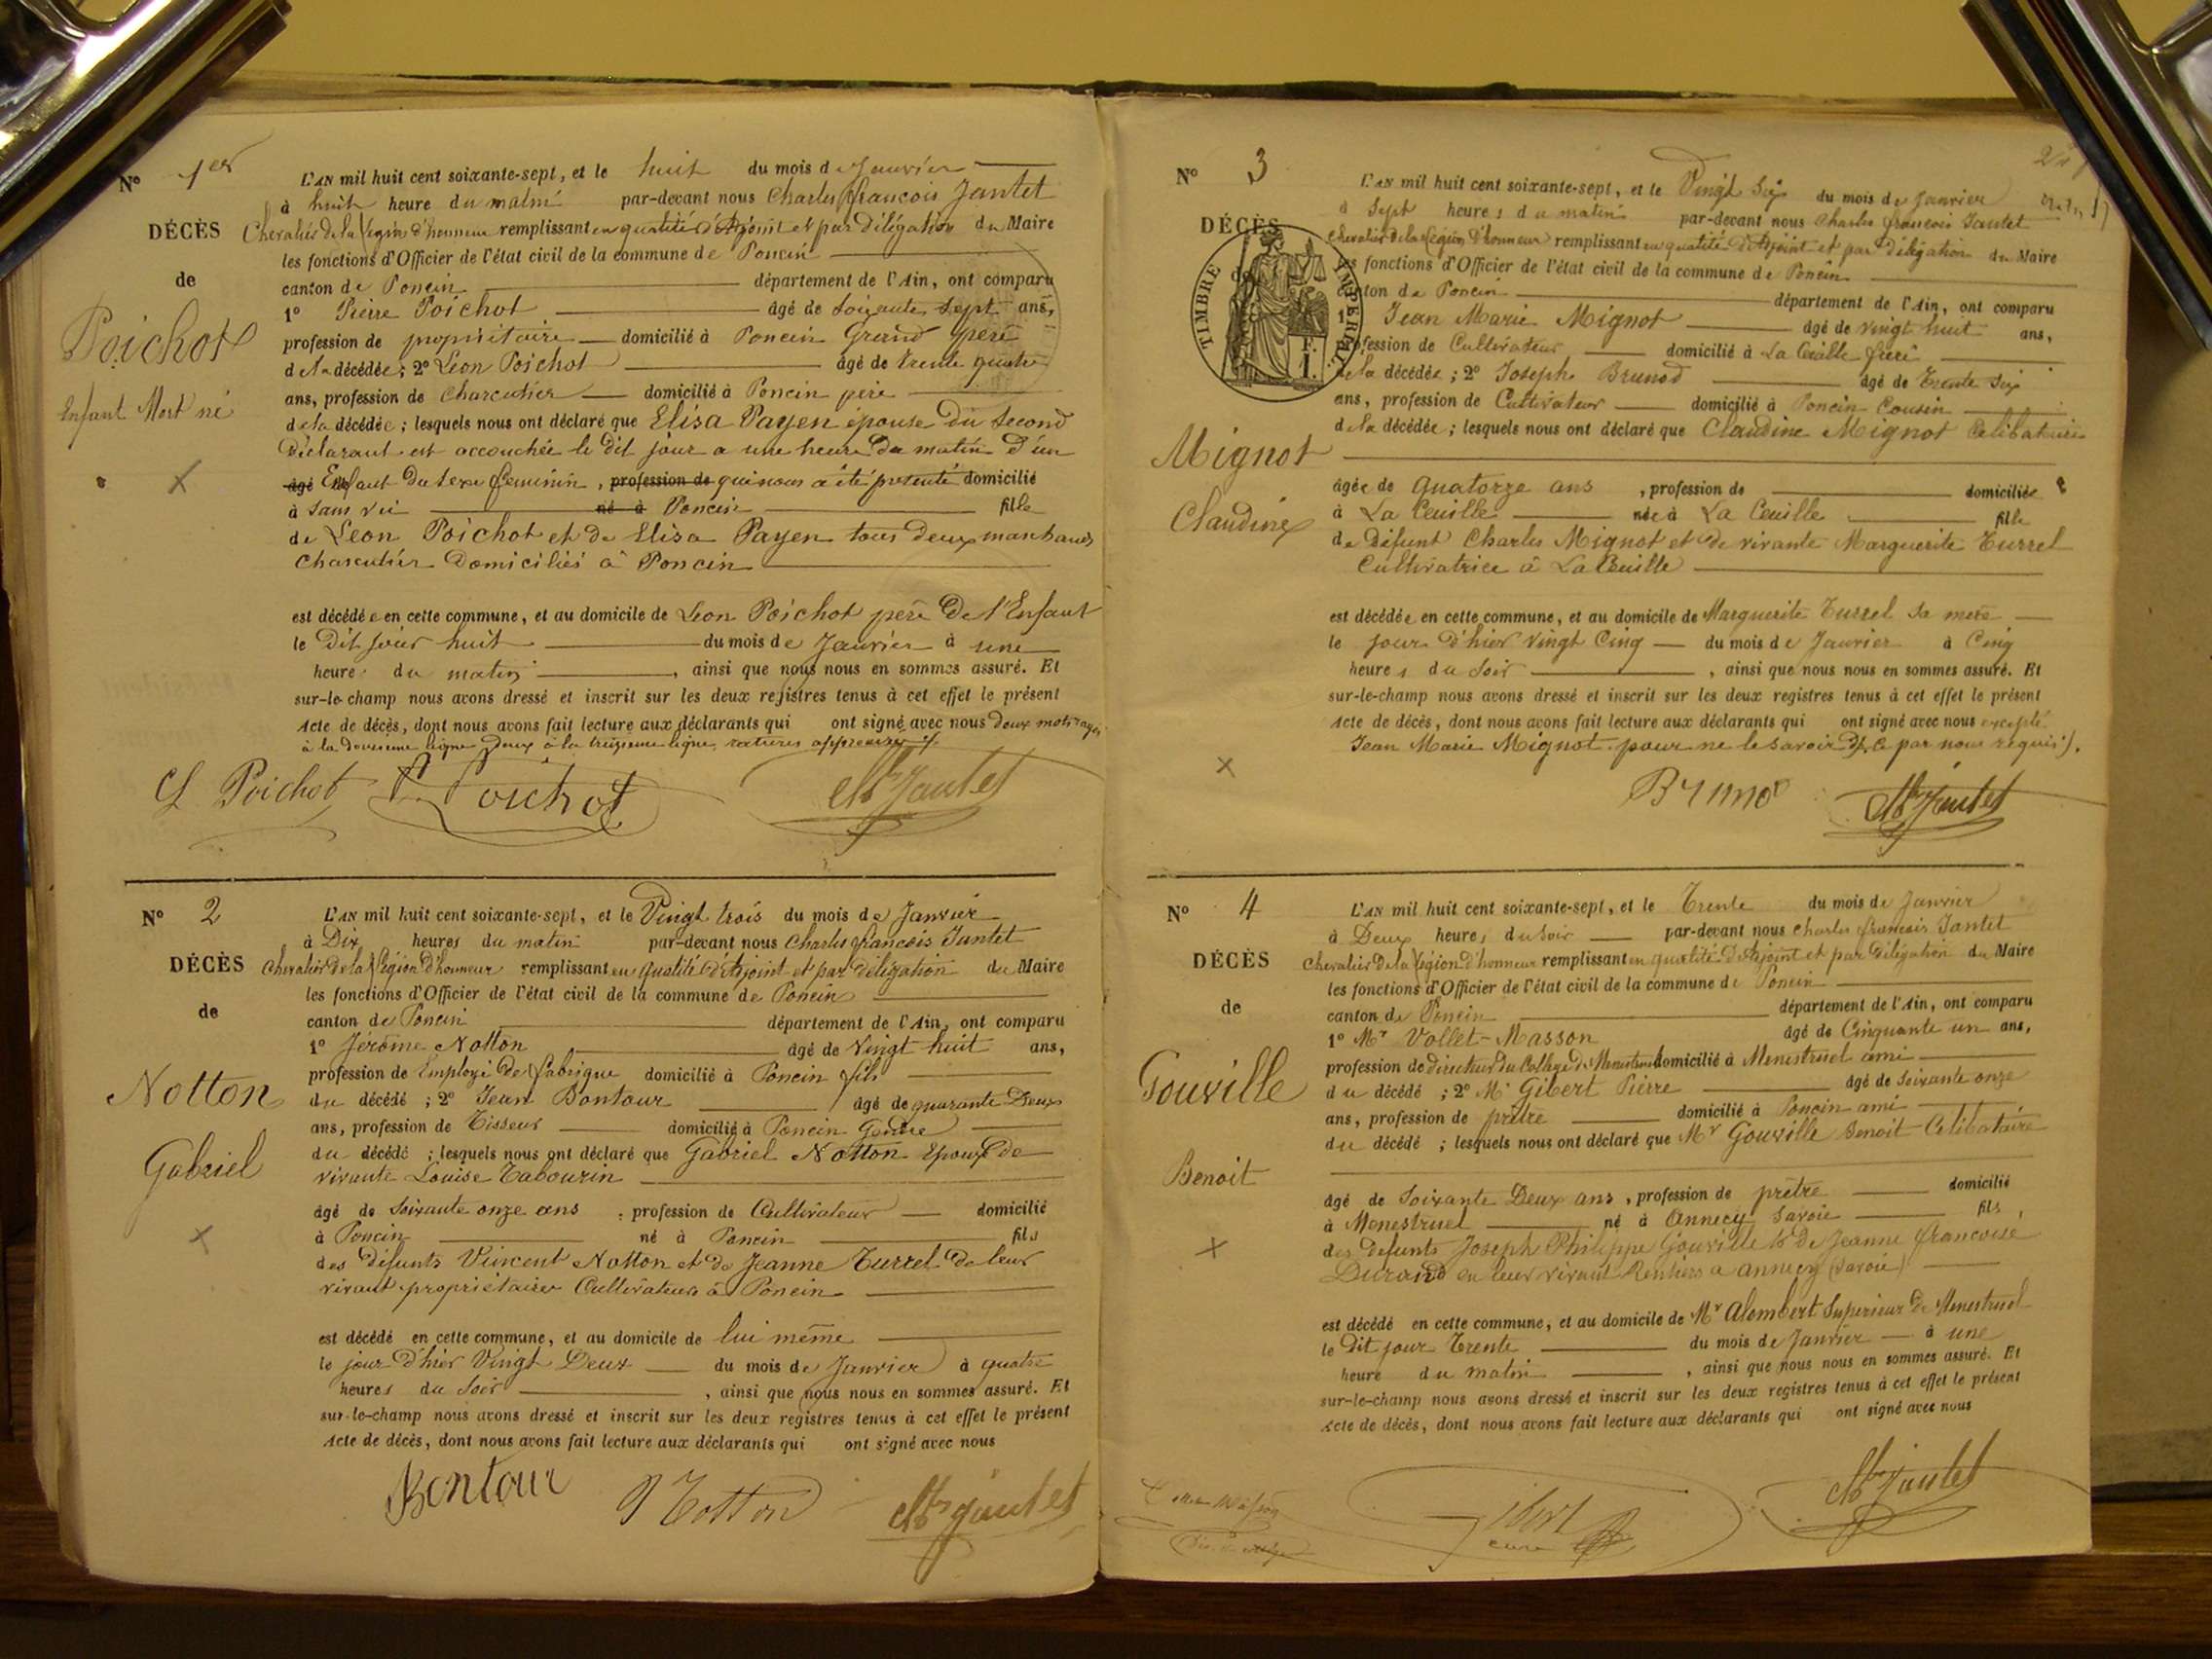 Nº 1er
DÉCÈS
de
Poichot
Enfant Mort né
L'AN mil huit cent soixante-sept, et le huit du mois de Janvier
à huit heure du matin par-devant nous Charles françois Jantet
Chevalier de la Légion d'honneur remplissant en qualité d'Adjoint et par délégation du Maire
les fonctions d'Officier de l'état civil de la commune de Poncin
canton de Poncin département de l'Ain, ont comparu
1º Pierre Poichot âgé de Soixante sept ans,
profession de propriétaire domicilié à Poncin Grand père
de la décédée; 2º Léon Poichot âgé de trente quatre
ans, profession de Charcutier domicilié à Poncin père
de la décédée; lesquels nous ont déclaré que Elisa Payen épouse du second
Déclarant est accouchée le dit jour a une heure du matin d'un
âgé Enfant du sexe féminin, profession de qui nous a été présenté domicilié
à sans vie né à Poncin fille
de Léon Poichot et de Elisa Payen tous deux marchands
Charcutier Domiciliés à Poncin
est décédée en cette commune, et au domicile de Léon Poichot père de l'Enfant
le Dit jour huit du mois de Janvier à une
heure du matin, ainsi que nous nous en sommes assuré. Et
sur-le-champ nous avons dressé et inscrit sur les deux registres tenus à cet effet le présent
Acte de décès, dont nous avons fait lecture aux déclarants qui ont signé avec nous deux mots rayés
à la douzième ligne Deux à la treizième ligne, ratures approuvées
Poichot Poichot Jantet
Nº 2
DÉCÈS
de
Notton
Gabriel
L'AN mil huit cent soixante-sept, et le Vingt trois du mois de Janvier
à Dix heures du matin par-devant nous Charles françois Jantet
Chevalier de la Légion d'honneur remplissant en qualité d'Adjoint et par délégation du Maire
les fonctions d'Officier de l'état civil de la commune de Poncin
canton de Poncin département de l'Ain, ont comparu
1º Jérôme Notton âgé de Vingt huit ans,
profession de Employé de fabrique domicilié à Poncin fils
du décédé; 2º Jean Bontour âgé de quarante Deux
ans, profession de Tisseur domicilié à Poncin Gendre
du décédé; lesquels nous ont déclaré que Gabriel Notton Epoux de
vivante Louise Tabourin
âgé de Soixante onze ans, profession de Cultivateur domicilié
à Poncin né à Poncin fils
des défunts Vincent Notton et de Jeanne Turrel de leur
vivant propriétaires Cultivateurs à Poncin
est décédé en cette commune, et au domicile de lui même
le jour d'hier Vingt Deux du mois de Janvier à quatre
heures du soir, ainsi que nous nous en sommes assuré. Et
sur-le-champ nous avons dressé et inscrit sur les deux registres tenus à cet effet le présent
Acte de décès, dont nous avons fait lecture aux déclarants qui ont signé avec nous
Bontour Notton Jantet
Nº 3
DÉCÈS
de
TIMBRE IMPÉRIAL
F.
1.
Mignot
Claudine
L'AN mil huit cent soixante-sept, et le Vingt Six du mois de Janvier
à Sept heures du matin par-devant nous Charles françois Jantet
Chevalier de la Légion d'honneur remplissant en qualité d'Adjoint et par délégation du Maire
les fonctions d'Officier de l'état civil de la commune de Poncin
canton de Poncin département de l'Ain, ont comparu
1º Jean Marie Mignot âgé de vingt huit ans,
profession de Cultivateur domicilié à La Cueille frère
de la décédée; 2º Joseph Brunod âgé de Trente Six
ans, profession de Cultivateur domicilié à Poncin Cousin
de la décédée; lesquels nous ont déclaré que Claudine Mignot Célibataire
âgée de quatorze ans, profession de domiciliée
à La Cueille née à La Cueille fille
de Défunt Charles Mignot et de vivante Marguerite Turrel
Cultivatrice à La Cueille
est décédée en cette commune, et au domicile de Marguerite Turrel sa mère
le jour d'hier vingt Cinq du mois de Janvier à Cinq
heures du soir, ainsi que nous nous en sommes assuré. Et
sur-le-champ nous avons dressé et inscrit sur les deux registres tenus à cet effet le présent
Acte de décès, dont nous avons fait lecture aux déclarants qui ont signé avec nous excepté
Jean Marie Mignot pour ne le savoir de ce par nous requis.
Brunod Jantet
Nº 4
DÉCÈS
de
Gouville
Benoit
L'AN mil huit cent soixante-sept, et le Trente du mois de Janvier
à Deux heures du soir par-devant nous Charles françois Jantet
Chevalier de la Légion d'honneur remplissant en qualité d'Adjoint et par délégation du Maire
les fonctions d'Officier de l'état civil de la commune de Poncin
canton de Poncin département de l'Ain, ont comparu
1º Mr Vollet-Masson âgé de Cinquante un ans,
profession de directeur du Collège de Menestruel domicilié à Menestruel ami
du décédé; 2º Mr Gibert Pierre âgé de Soixante onze
ans, profession de prêtre domicilié à Poncin ami
du décédé; lesquels nous ont déclaré que Mr Gouville Benoit Célibataire
âgé de Soixante Deux ans, profession de prêtre domicilié
à Menestruel né à Annecy Savoie fils
des défunts Joseph Philippe Gouville & de Jeanne françoise
Durand en leur vivant Rentiers a annecy (Savoie)
est décédé en cette commune, et au domicile de Mr Alombert Supérieur de Menestruel
le Dit jour Trente du mois de Janvier à une
heure du matin, ainsi que nous nous en sommes assuré. Et
sur-le-champ nous avons dressé et inscrit sur les deux registres tenus à cet effet le présent
Acte de décès, dont nous avons fait lecture aux déclarants qui ont signé avec nous
Masson Gibert curé Jantet